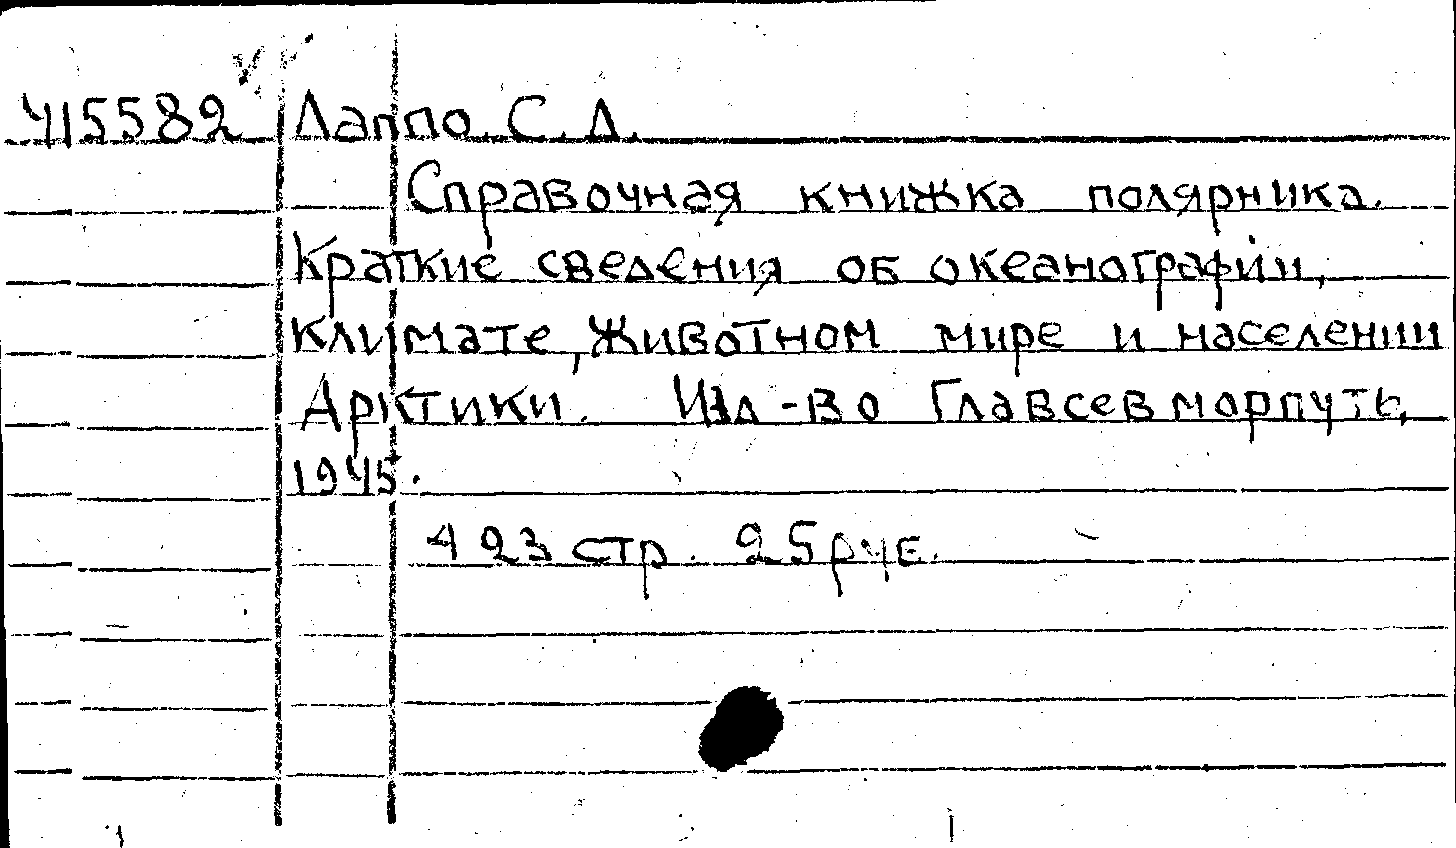 415582 Лаппо С. Д.
Справочная книжка полярника.
Краткие сведения об океанографии,
климате, животном мире и населении
Арктики. Изд-во Главсевморпуть,
1945.
423 стр. 25 руб.